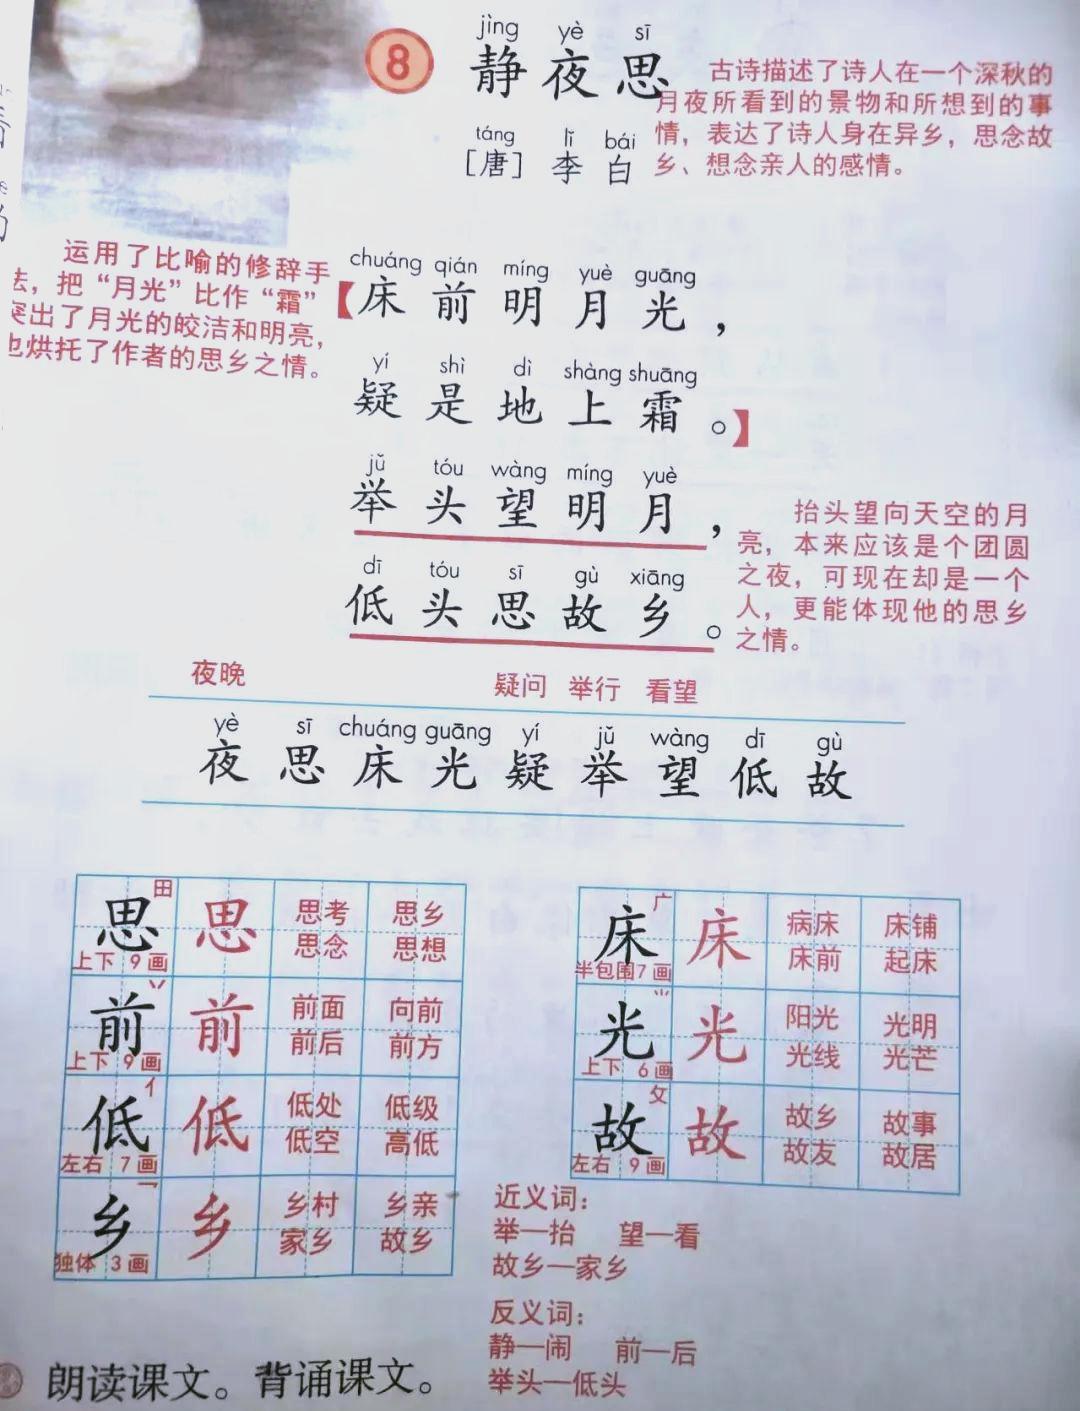 jìng yè sī
8 静夜思
古诗描述了诗人在一个深秋的
月夜所看到的景物和所想到的事
情，表达了诗人身在异乡，思念故
乡、想念亲人的感情。
táng lǐ bái
［唐］李 白
运用了比喻的修辞手
法，把“月光”比作“霜”
突出了月光的皎洁和明亮，
也烘托了作者的思乡之情。
chuáng qián míng yuè guāng
【床前明月光，
yí shì dì shàng shuāng
疑是地上霜。】
jǔ tóu wàng míng yuè
举头望明月，
dī tóu sī gù xiāng
低头思故乡。
抬头望向天空的月
亮，本来应该是个团圆
之夜，可现在却是一个
人，更能体现他的思乡
之情。
夜晚 疑问 举行 看望
yè sī chuáng guāng yí jǔ wàng dī gù
夜思床光疑举望低故
田
思 思 思考 思乡
思念 思想
上下 9画
丷
前 前 前面 向前
前后 前方
上下 9画
亻
低 低 低处 低级
低空 高低
左右 7画
乛
乡 乡 乡村 乡亲
家乡 故乡
独体 3画
广
床 床 病床 床铺
床前 起床
半包围7画
⺌
光 光 阳光 光明
光线 光芒
上下 6画
攵
故 故 故乡 故事
故友 故居
左右 9画
近义词：
举—抬 望—看
故乡—家乡
反义词：
静—闹 前—后
举头—低头
朗读课文。背诵课文。